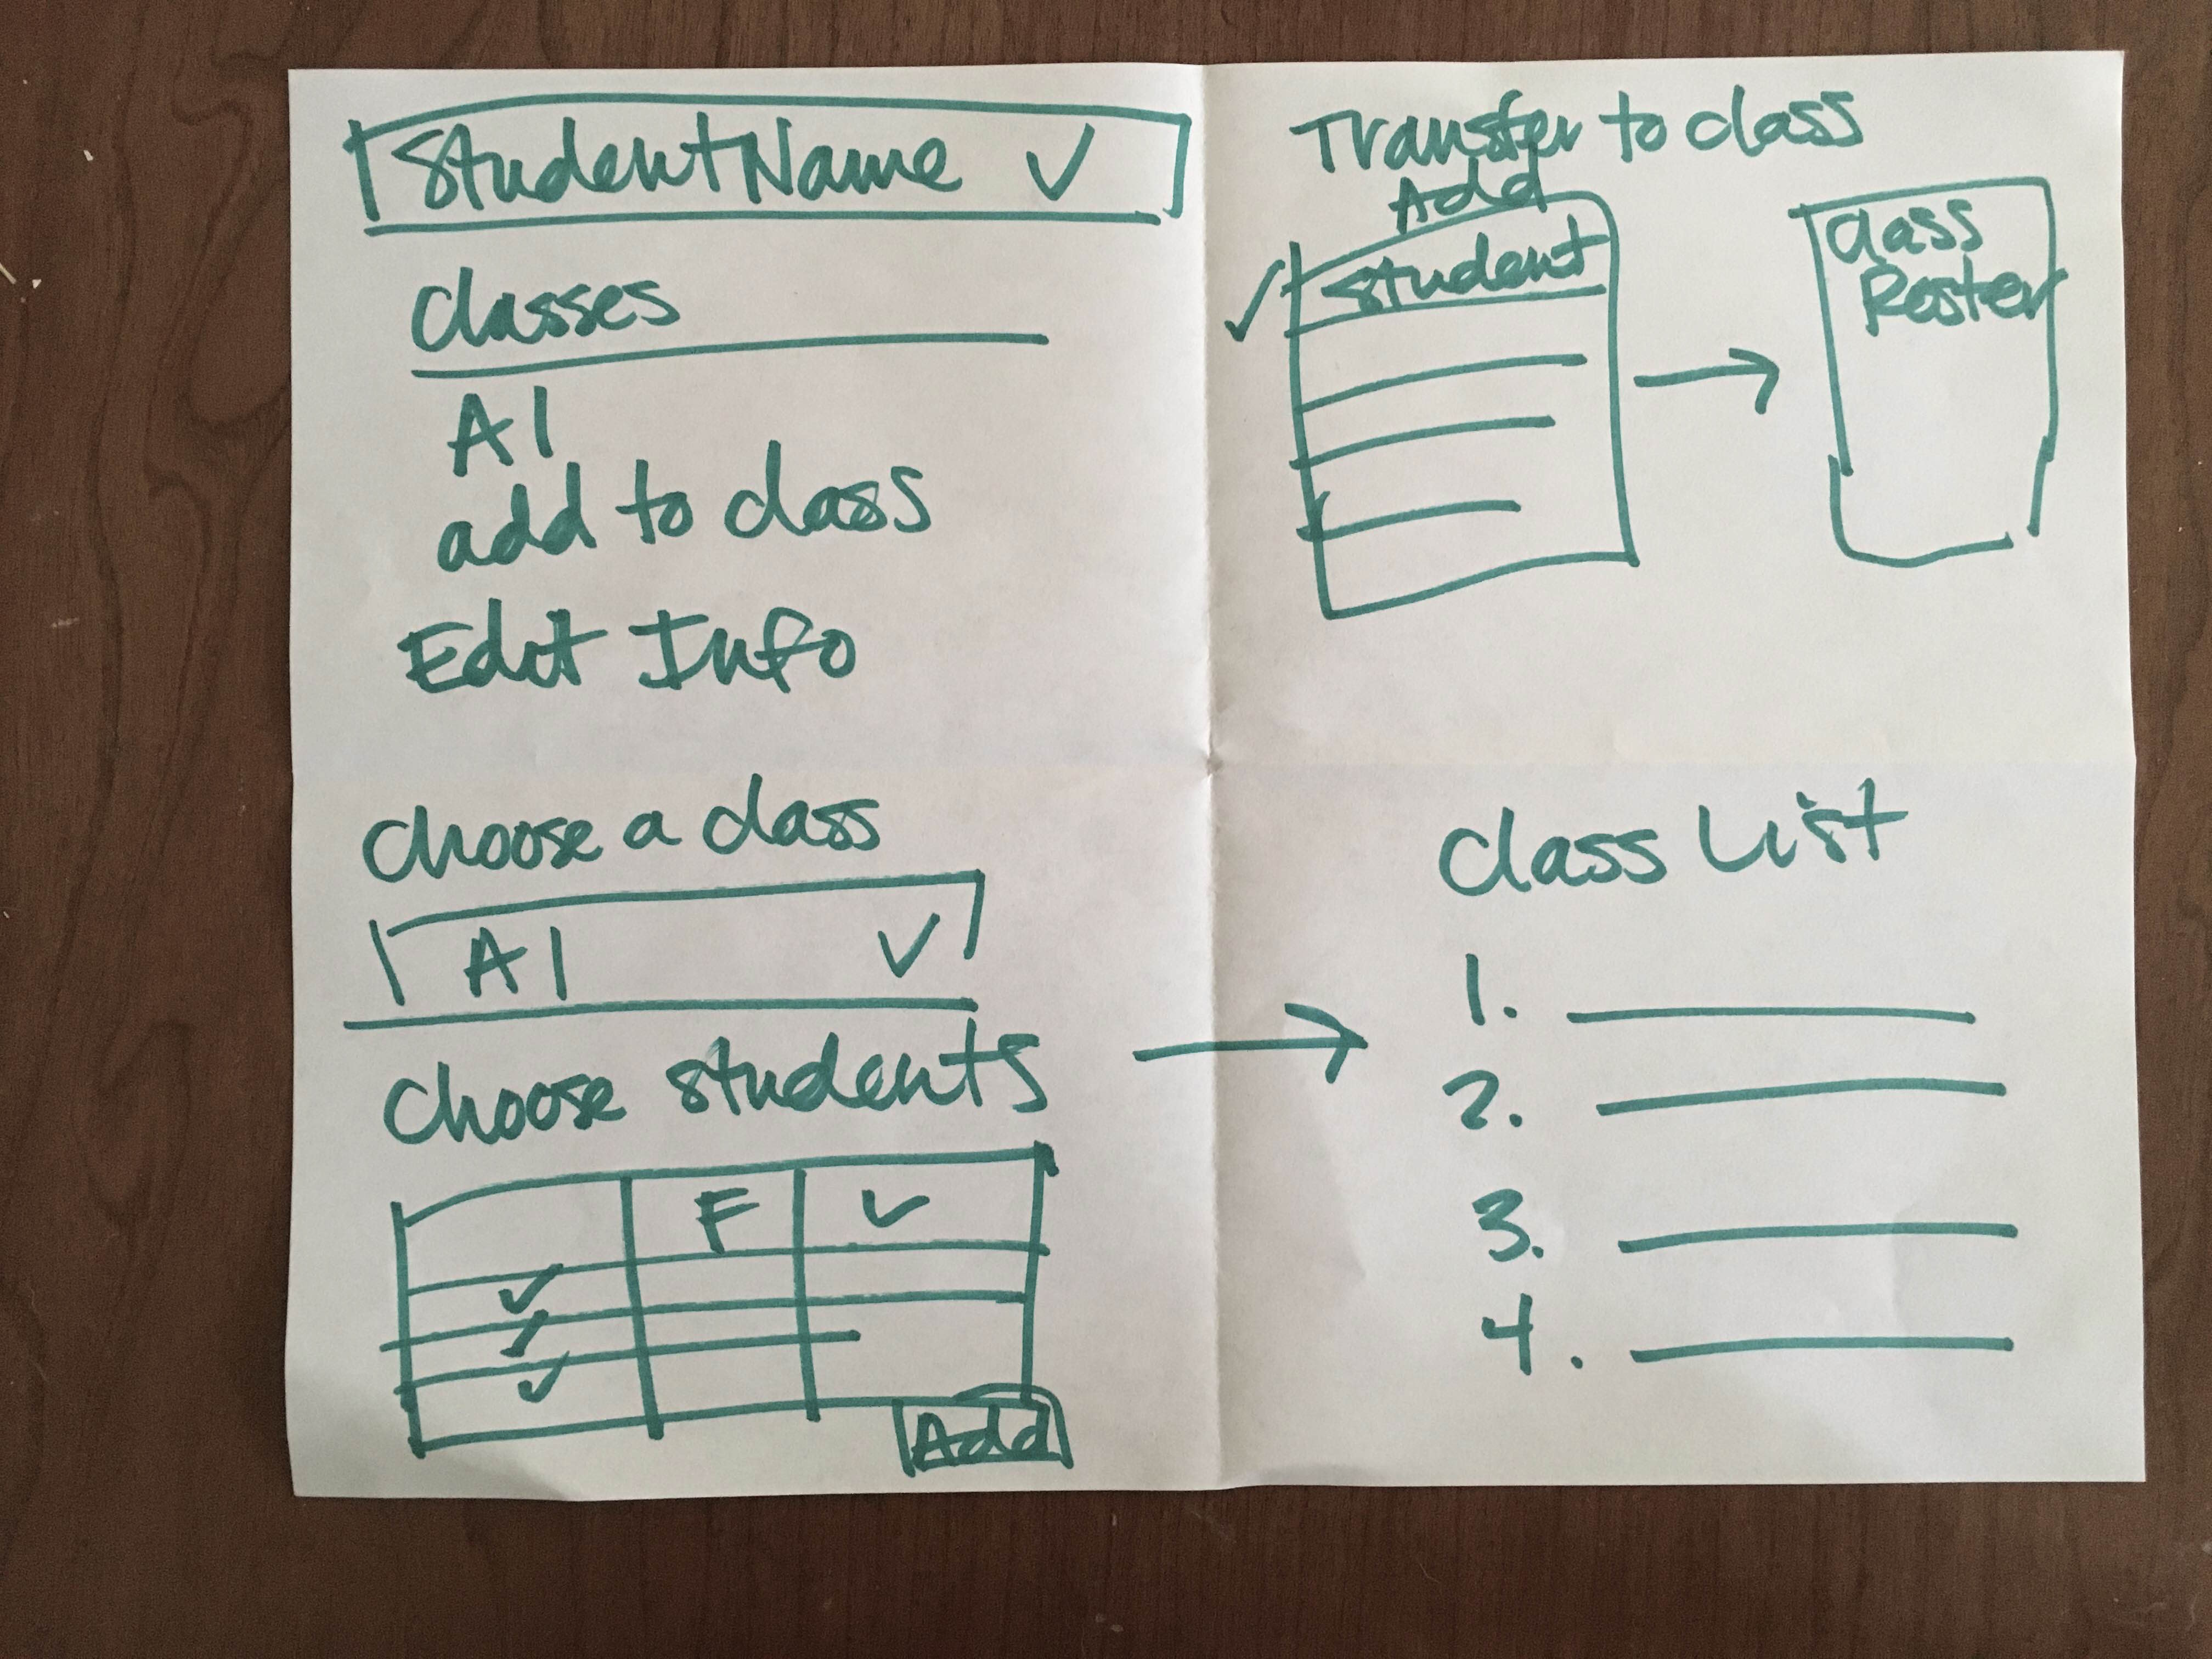 Student Name
classes
A1
add to class
Edit Info
Transfer to class
Add
Student
Class
Roster
Choose a class
A1
Choose students
F
Add
Class List
1.
2.
3.
4.